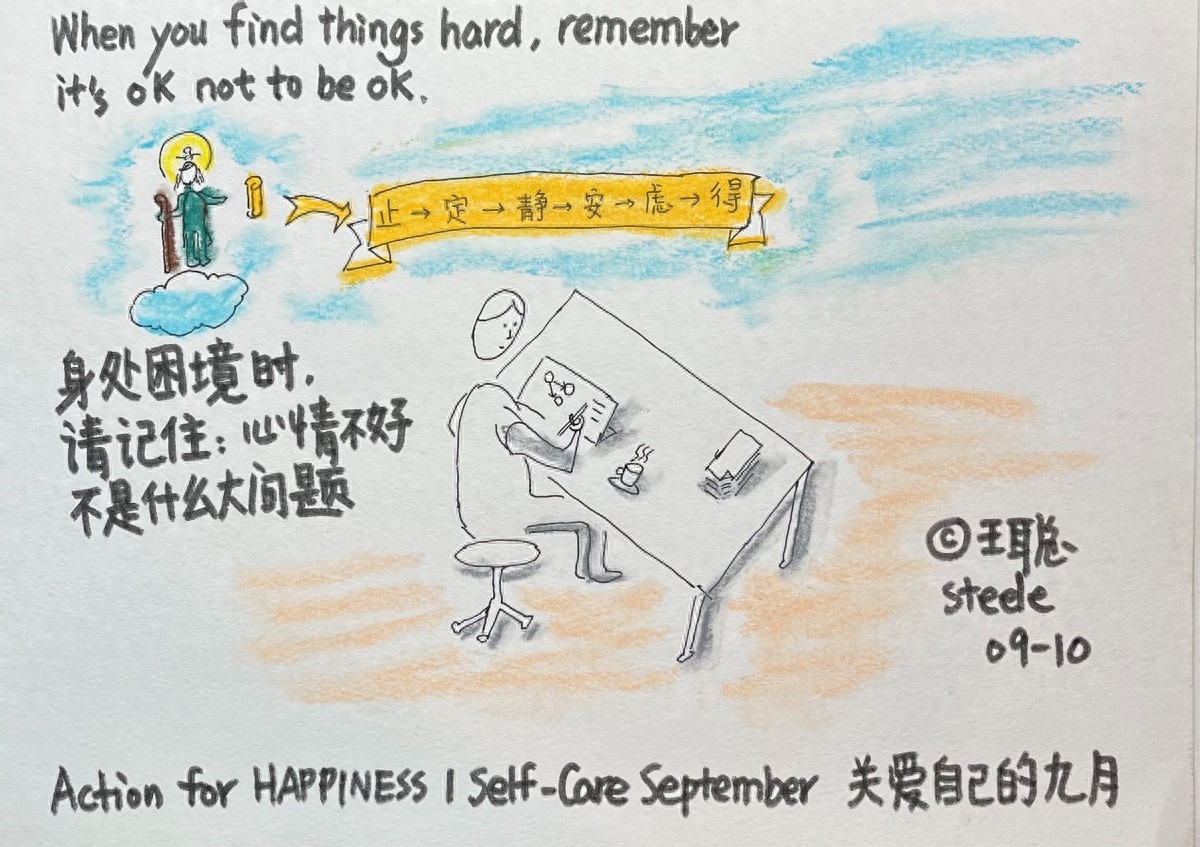 When you find things hard, remember
it's OK not to be OK.
止→定→静→安→虑→得
身处困境时,
请记住:心情不好
不是什么大问题
©王聪
steele
09-10
Action for HAPPINESS | Self-Care September 关爱自己的九月